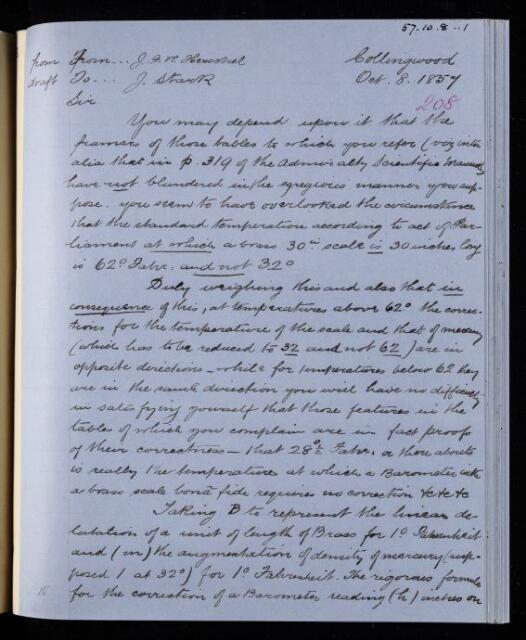 57.10.8..1
from From... J.F.W. Herschel Collingwood
draft To... J. Stark Oct. 8. 1857
208
Sir
You may depend upon it that the
framers of those tables to which you refer (viz inter
alia that in p. 319 of the Admiralty Scientific Manual)
have not blundered in the egregious manner you sup-
pose. you seem to have overlooked the circumstance
that the standard temperature according to act of Par-
liament at which a brass 30 in scale is 30 inches long
is 62° Fahr: and not 32°
Duly weighing this and also that in
consequence of this, at temperatures above 62° the correc-
tions for the temperature of the scale and that of mercury
(which has to be reduced to 32 and not 62) are in
opposite directions – while for temperatures below 62 they
are in the same direction you will have no difficulty
in satisfying yourself that those features in the
tables of which you complain are in fact proofs
of their correctness – that 28° Fahr. or there abouts
is really the temperature at which a Barometer with
a brass scale bonâ fide requires no correction &c &c &c
Taking B to represent the linear di-
latation of a unit of length of Brass for 1° Fahrenheit
and (m) the augmentation of density of mercury (sup-
posed 1 at 32°) for 1° Fahrenheit. The rigorous formula
for the correction of a Barometer reading (h) inches on